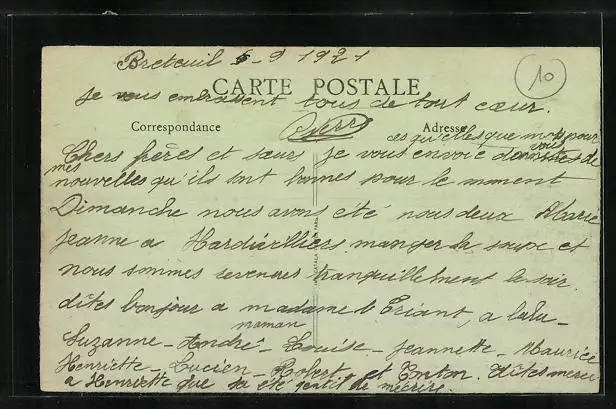 Breteuil 5-9 1921
10
CARTE POSTALE
je vous embrassent tous de tout cœur.
Correspondance
Pierre
Adresse
ces quelles que mots pour
Chers frères et sœurs je vous envoie de
vous
mes
nouvelles qu'ils sont bonnes pour le moment
Dimanche nous avons été nous deux Marie
Jeanne a Hardivilliers manger la soupe et
nous sommes revenues tranquillement le soir.
dites bonjour a madame Triant, a lulu -
maman
Suzanne - André - Louise - Jeannette - Maurice
Henriette - Lucien - Robert et Tonton. Dites merci
a Henriette que sa été gentil de